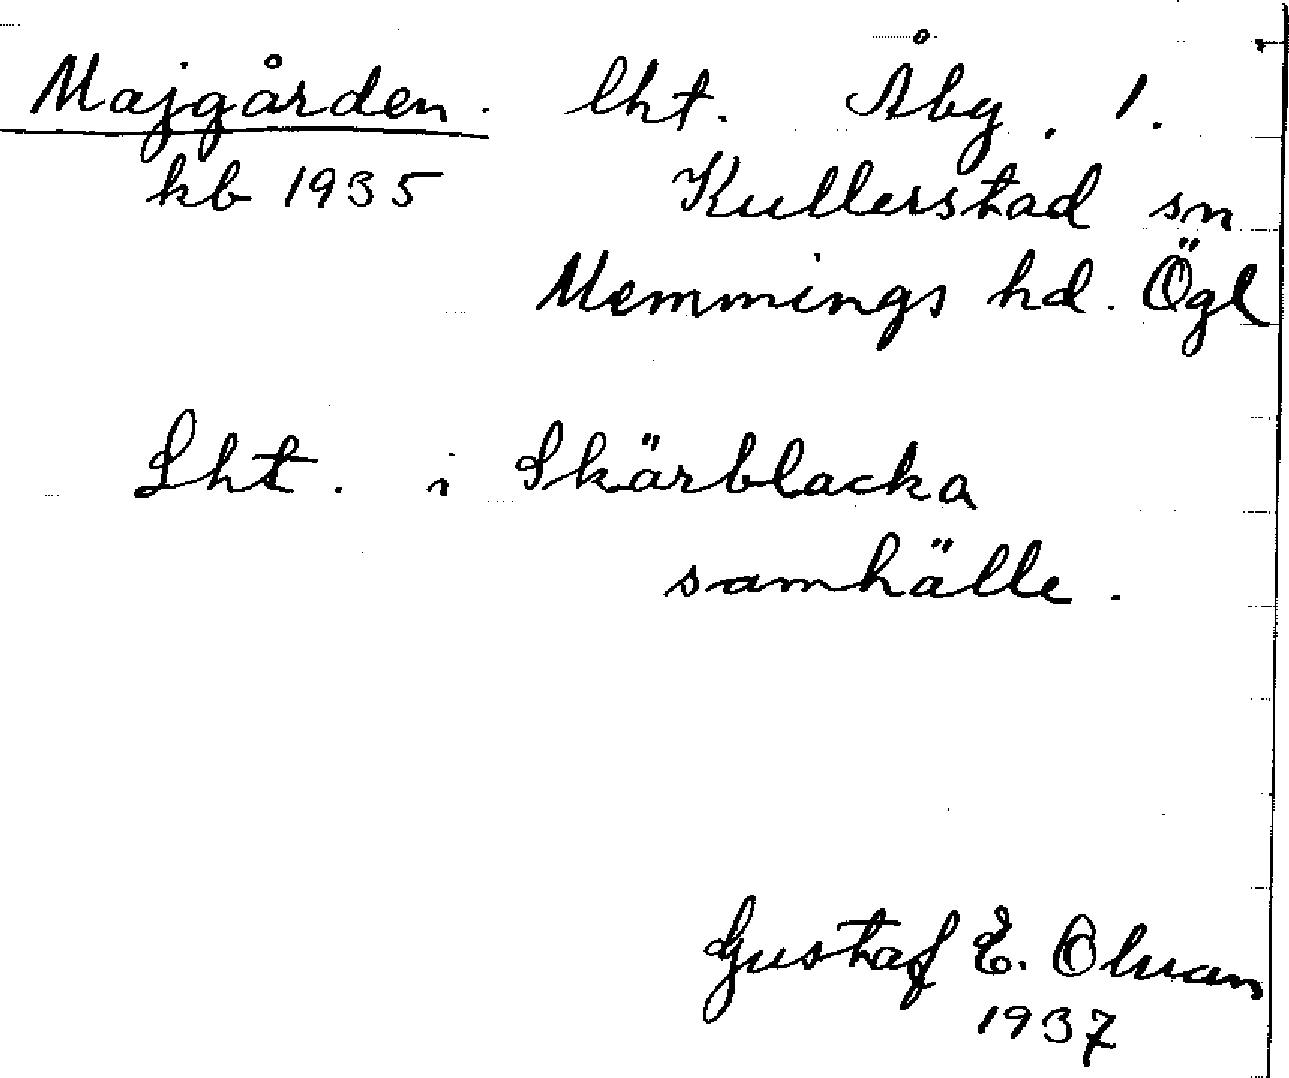 Majgården. lht. Åbg. 1.
kb 1935 Kullerstad sn
Memmings hd. Ögl
Lht. i Skärblacka
samhälle.
Gustaf E. Olsson
1937